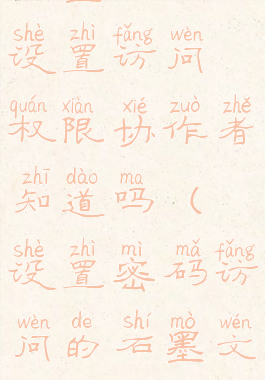 shè zhì fǎng wèn
设置访问
quán xiàn xié zuò zhě
权限协作者
zhī dào ma
知道吗（
shè zhì mì mǎ fǎng
设置密码访
wèn de shí mò wén
问的石墨文